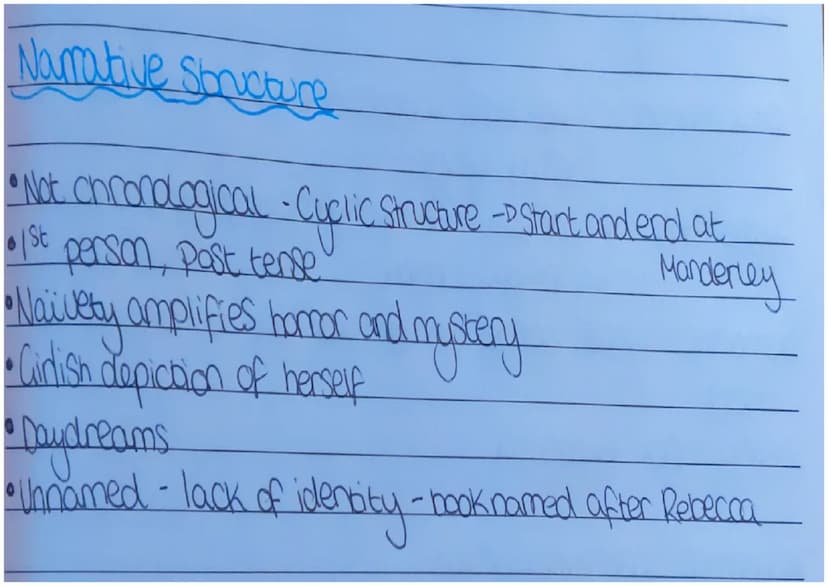 Narrative Structure
• Not chronological - Cyclic structure → Start and end at
Manderley
• 1st person, past tense
• Naïvety amplifies horror and mystery
• Girlish depiction of herself
• Daydreams
• Unnamed - lack of identity - book named after Rebecca